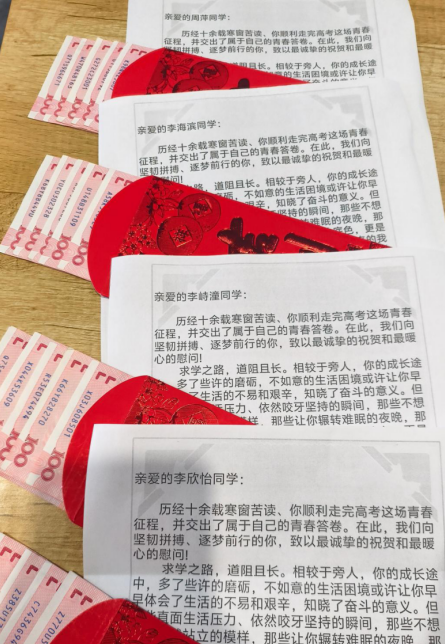 亲爱的周萍同学：
历经十余载寒窗苦读、你顺利走完高考这场青春
征程，并交出了属于自己的青春答卷。在此，我们向
坚韧拼搏、逐梦前行的你，致以最诚挚的祝贺和最暖
相较于旁人，你的成长
的生活困境或许让你早
亲爱的李海滨同学：
历经十余载寒窗苦读、你顺利走完高考这场青春
征程，并交出了属于自己的青春答卷。在此，我们向
坚韧拼搏、逐梦前行的你，致以最诚挚的祝贺和最暖
心的慰问！
之路，道阻且长。相较于旁人，你的成长途
多了些许的磨砺，不如意的生活困境或许让你早
艰辛，知晓了奋斗的意义。但
坚持的瞬间，那些不想
难眠的夜晚，那
底色，更是
亲爱的李峙潼同学：
历经十余载寒窗苦读、你顺利走完高考这场青春
征程，并交出了属于自己的青春答卷。在此，我们向
坚韧拼搏、逐梦前行的你，致以最诚挚的祝贺和最暖
心的慰问！
求学之路，道阻且长。相较于旁人，你的成长途
多了些许的磨砺，不如意的生活困境或许让你早
了生活的不易和艰辛，知晓了奋斗的意义。但
活压力、依然咬牙坚持的瞬间，那些不想
模样，那些让你辗转难眠的夜晚，那
亲爱的李欣怡同学：
历经十余载寒窗苦读、你顺利走完高考这场青春
征程，并交出了属于自己的青春答卷。在此，我们向
坚韧拼搏、逐梦前行的你，致以最诚挚的祝贺和最暖
心的慰问！
求学之路，道阻且长。相较于旁人，你的成长途
中，多了些许的磨砺，不如意的生活困境或许让你早
早体会了生活的不易和艰辛，知晓了奋斗的意义。但
直面生活压力、依然咬牙坚持的瞬间，那些不想
站立的模样，那些让你辗转难眠的夜晚，那
100
100
100